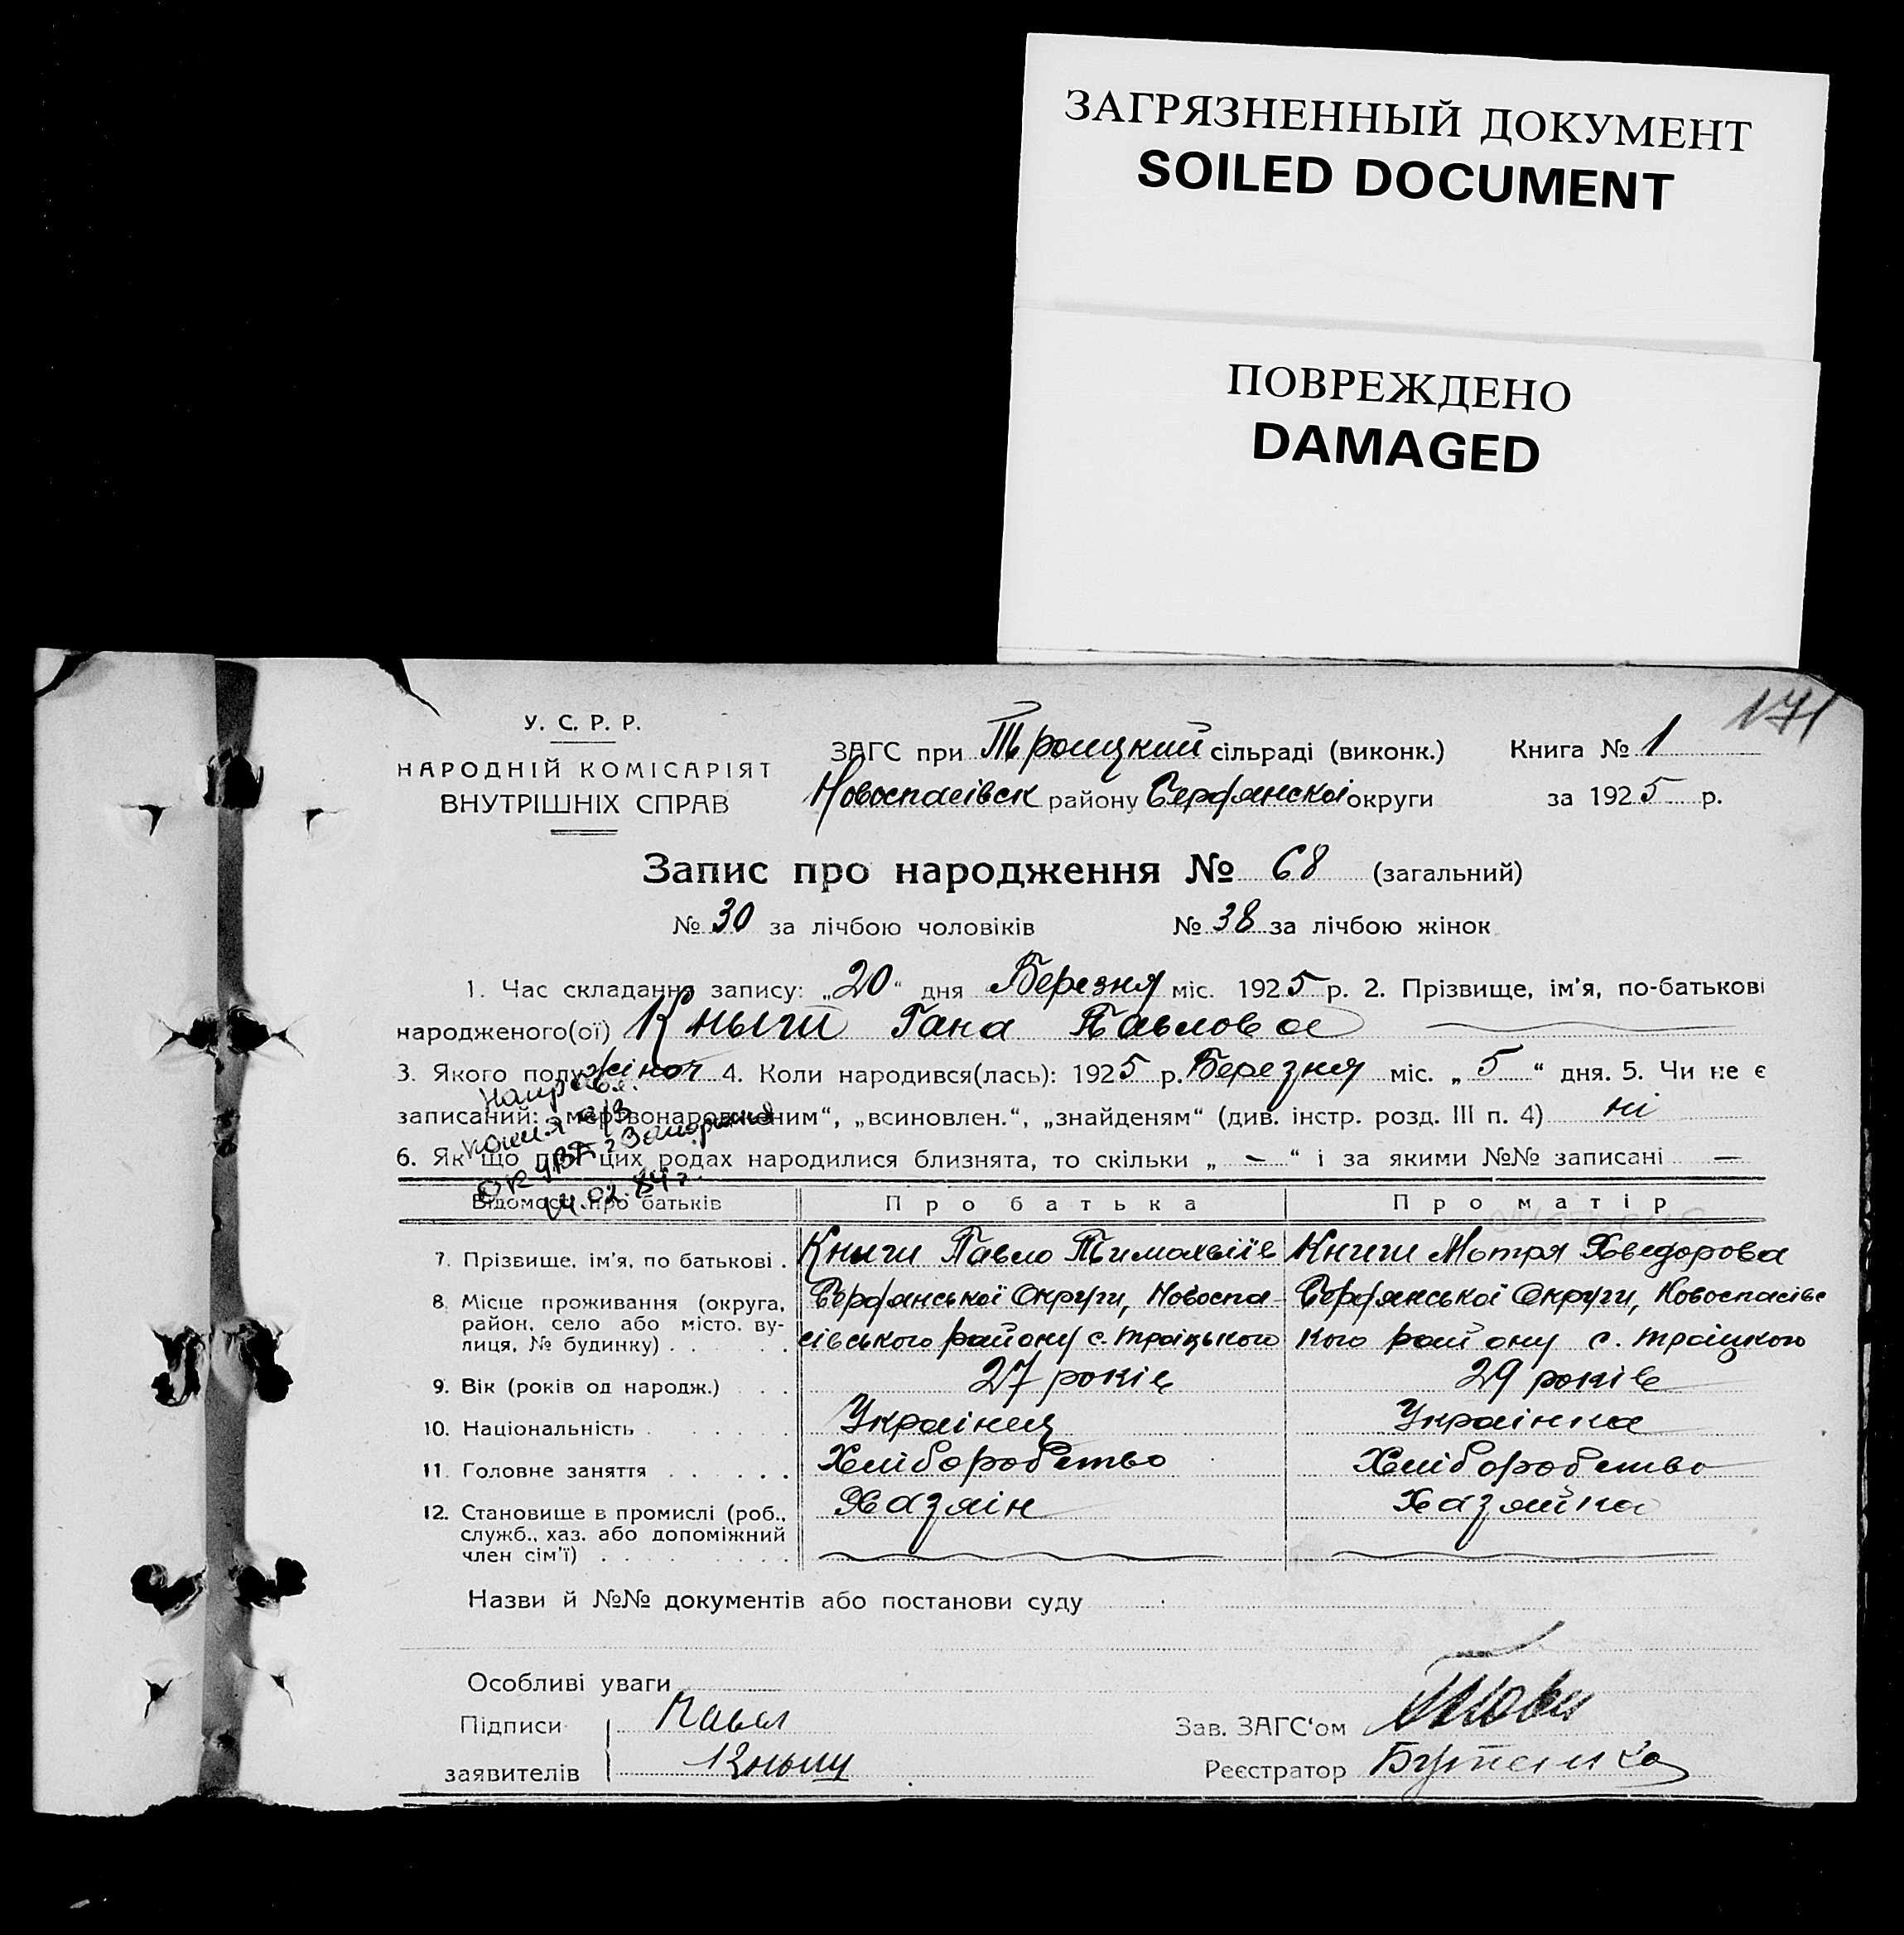 ЗАГРЯЗНЕННЫЙ ДОКУМЕНТ
SOILED DOCUMENT
ПОВРЕЖДЕНО
DAMAGED
171
У. С. Р. Р.
НАРОДНІЙ КОМІСАРІЯТ
ВНУТРІШНІХ СПРАВ
ЗАГС при Троицкий сільраді (виконк.) Книга № 1
Новоспасівск району Бердянскої округи за 1925 р.
Запис про народження № 68 (загальний)
№ 30 за лічбою чоловіків № 38 за лічбою жінок
1. Час складання запису: „20“ дня Березня міс. 1925 р. 2. Прізвище, ім’я, по-батькові
народженого(ої) Кныги Гана Павлова
3. Якого полу жіноч 4. Коли народився(лась): 1925 р. Березня міс. „5“ дня. 5. Чи не є
записаний: „мертвонародженим“, „всиновлен.“, „знайденям“ (див. інстр. розд. III п. 4) ні
6. Як що при цих родах народилися близнята, то скільки „ — “ і за якими №№ записані —
копия а/з
14.02.84г.
Відомості про батьків Про батька Про матір
Матрена
7. Прізвище, ім’я, по батькові . Кныги Павло Тимохвіїв Книги Мотря Хведорова
8. Місце проживання (округа, Бердянської Округи, Новоспа- Бердянської Округи, Новоспасівс
район, село або місто, ву-
лиця, № будинку) . . . . сівського району с. Троіцького кого району с. Троіцкого
9. Вік (років од народж.) . . 27 років 29 років
10. Національність . . . . . Украінец Украінка
11. Головне заняття . . . . . Хліборобство Хліборобство
12. Становище в промислі (роб., Хазяін Хазяйка
служб., хаз. або допоміжний
член сім’ї) . . . . . . . .
Назви й №№ документів або постанови суду
Особливі уваги
Підписи Павел
Зав. ЗАГС‘ом
заявителів Кныги
Реєстратор Бутенко